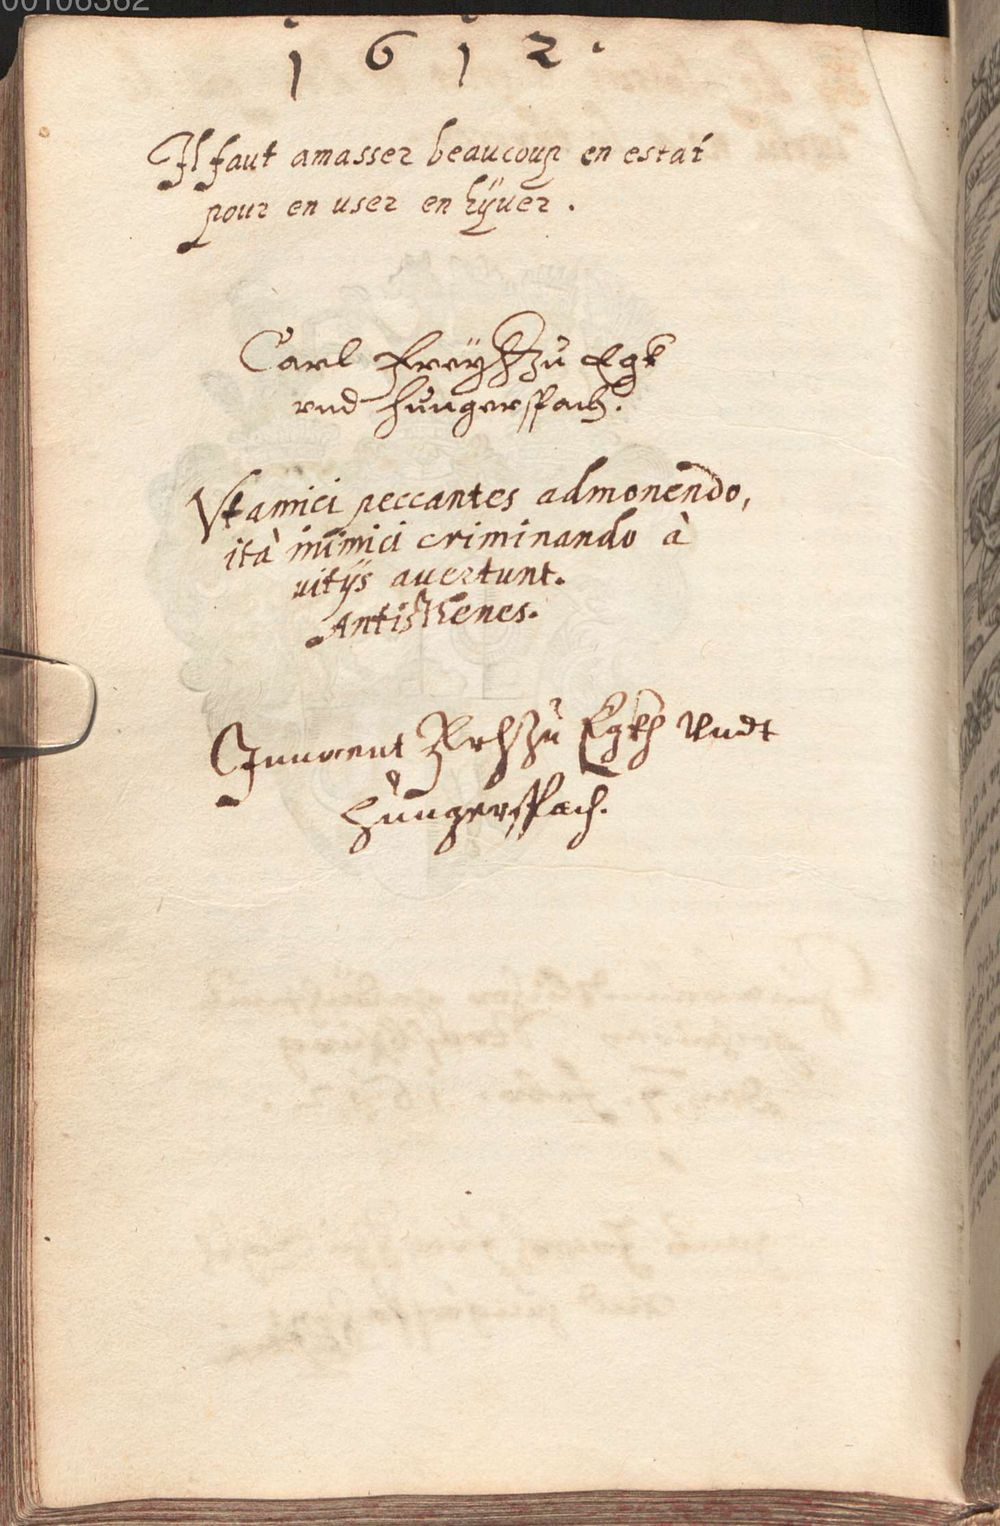 00106362
1612.
Il faut amasser beaucoup en estai
pour en user en hÿuer.
Carl Freyh zu Egk
vnd Hungerspach.
Vt amici peccantes admonendo,
ità inimici criminando à
vitijs auertunt.
Antisthenes.
Innocent zu Egkh Vndt
Hungerspach.